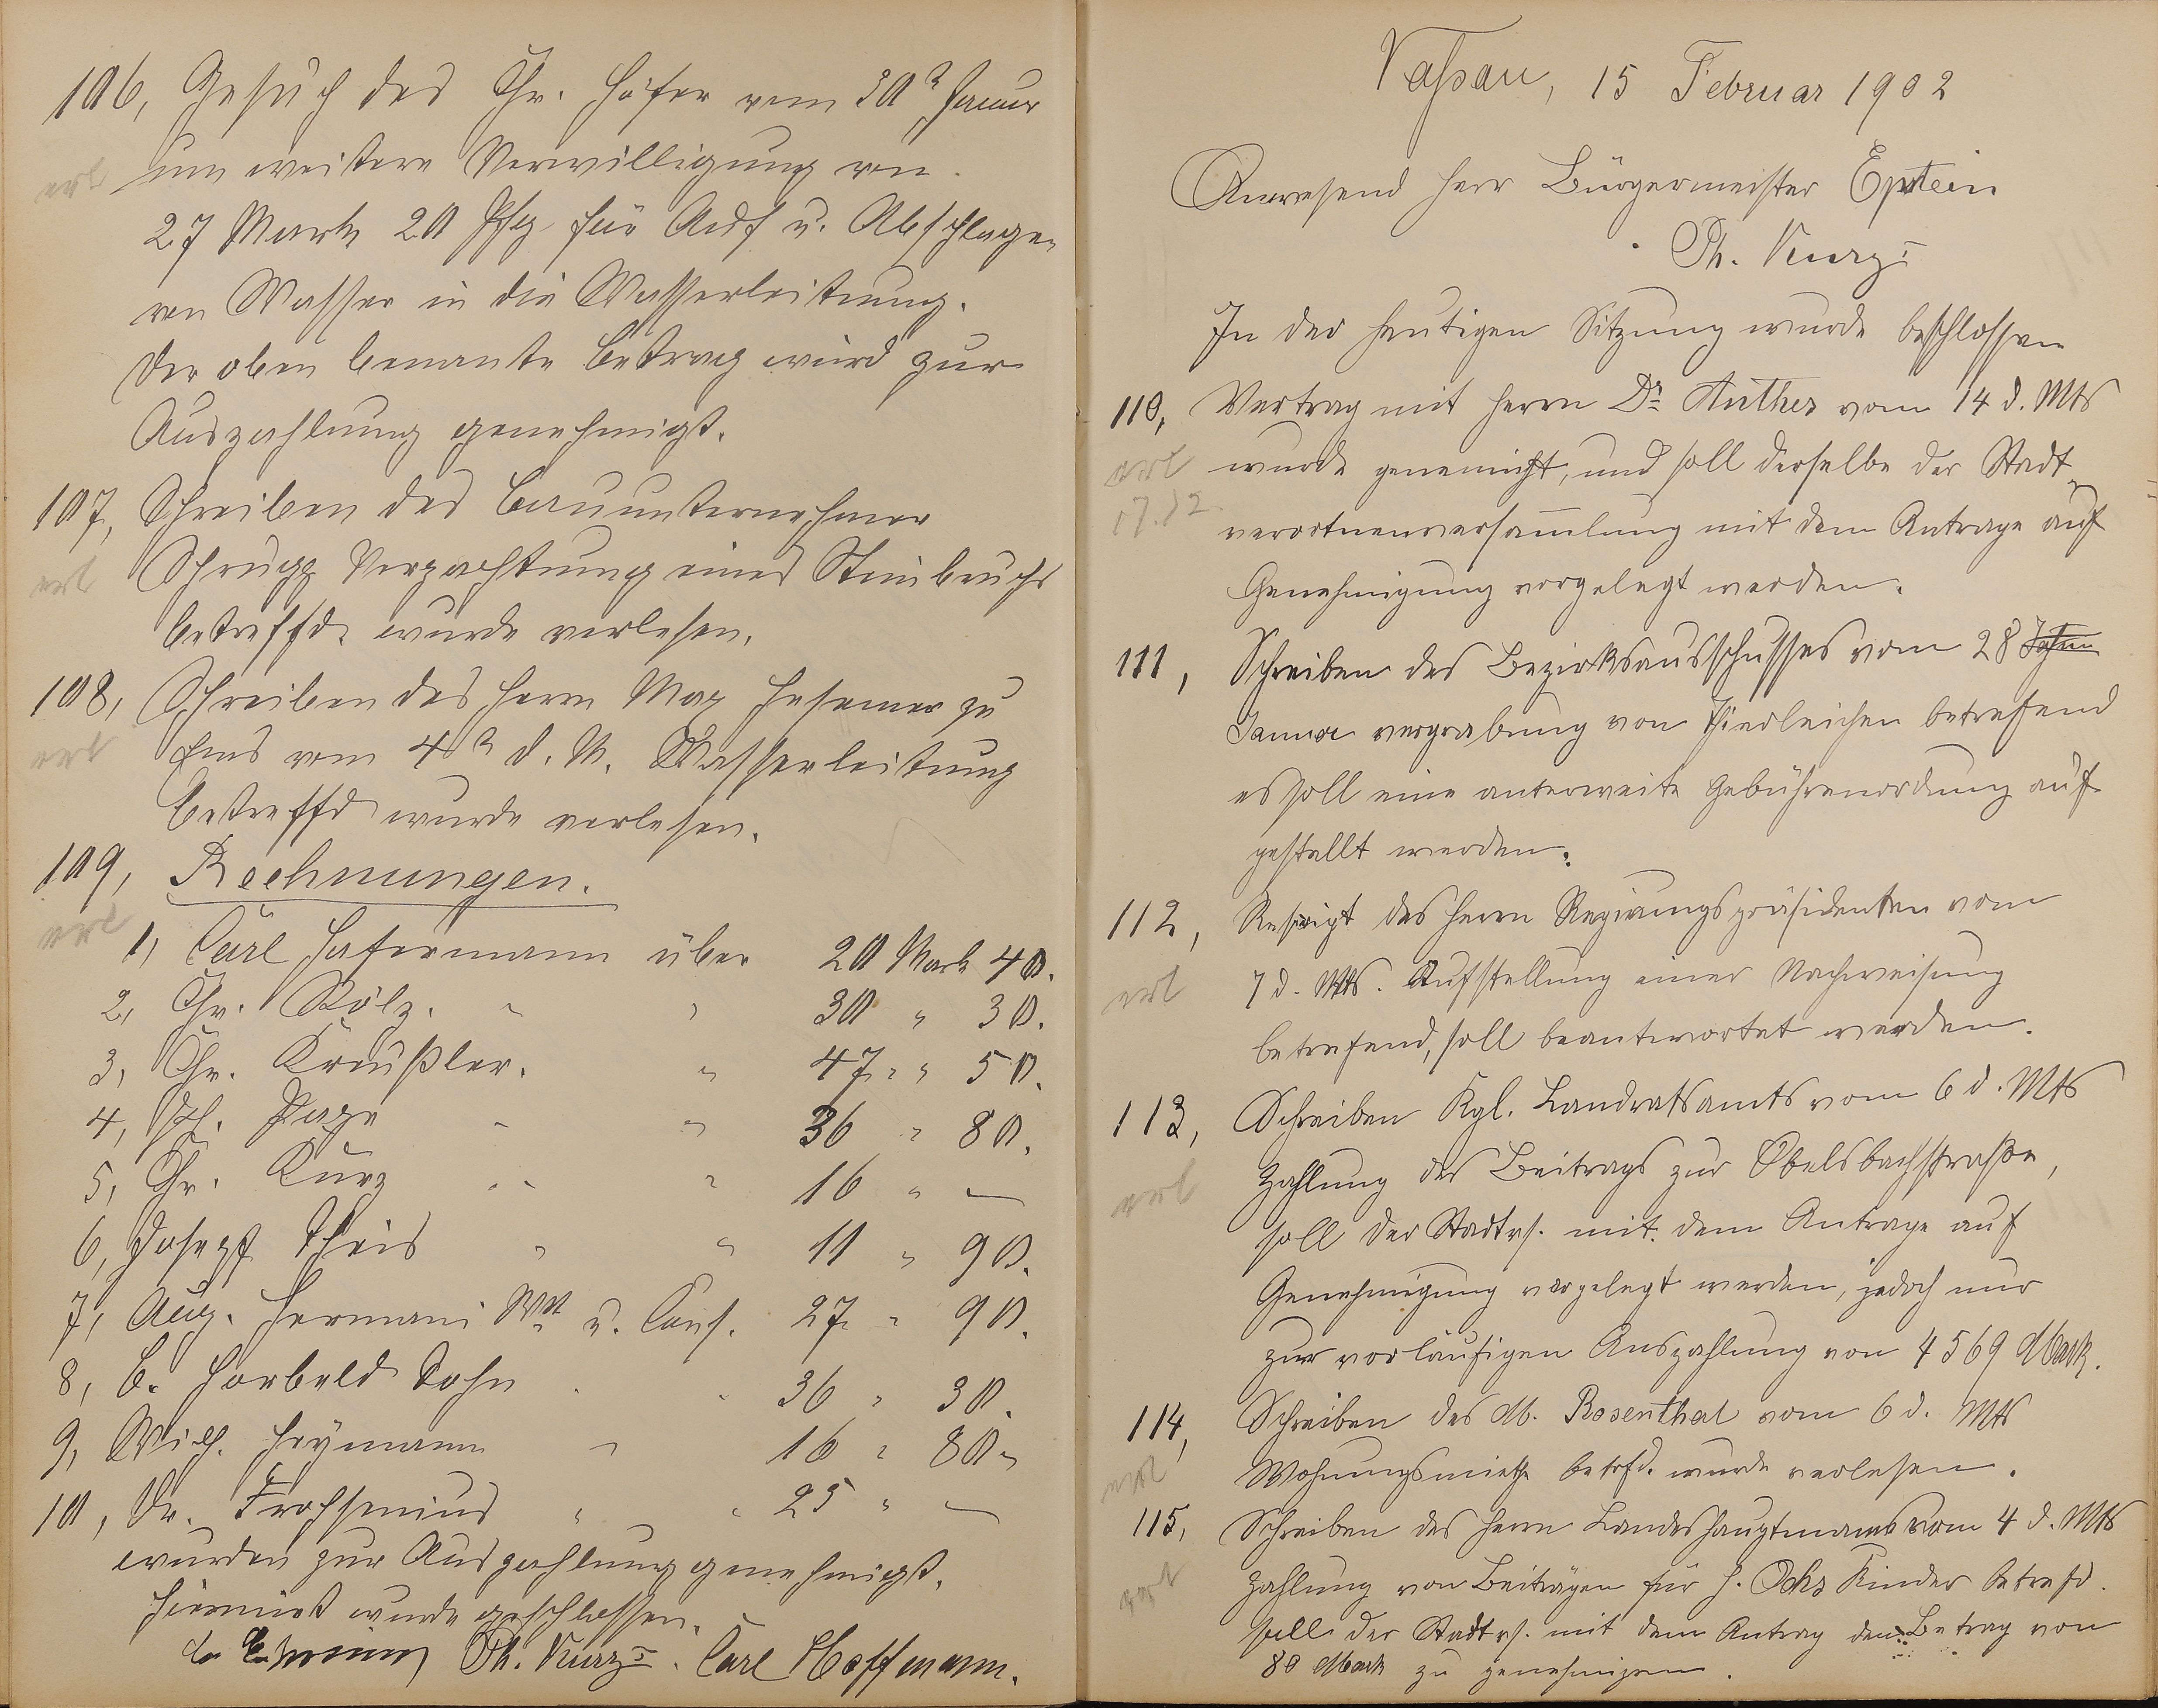 106, Gesuch des Chr. Höfer vom 30ᵗ Januar
erl um weitere Verwilligung von
27 Mark 20 Pfg für Auf u. Abschlagen
von Wasser in die Wasserleitung.
Der oben benante Betrag wird zur
Auszahlung genehmigt.
107, Schreiben des Bauunternehmer
erl Schrupp Verpachtung eines Steinbruchs
betreffd. wurde verlesen.
108, Schreiben des Herrn Max Hesemer zu
erl Ems vom 4ᵗ d. M. Wasserleitung
betreffd wurde verlesen.
109, Rechnungen.
erl
1, Carl Hafermann über 20 Mark 40.
2, Chr. Bölz. " " 30 " 30.
3, Chr. Kreußler. " 47 " 50.
4, Ph. " " 36 " 80.
5, Chr. Kurz " " 16 " —
6, Josepf Theis " " 11 " 90.
7, Aug. Hermani Wt. u. Cons. 27 " 90.
8, C. Horbeld Sohn " " 36 " 30.
9, Wilh. Heymann " 16 " 80.
10, Dr. " " 25 " —
wurden zur Auszahlung genehmigt.
Hiermit wurde geschlossen.
Ph. Kurz I. Carl Hoffmann.
Nassau, 15 Februar 1902
Anwesend Herr Bürgermeister Epstein
" Ph. Kurz I
In der heutigen Sitzung wurde beschlossen
110, Vertrag mit Herrn Dr. Anthes vom 14 d. Mts
erl wurde genemicht, und soll derselbe der Stadt-
verortnenversammlung mit dem Antrage auf
Genehmigung vorgelegt werden.
111, Schreiben des Bezirksausschusses vom 28
Januar vergrabung von Thierleichen betrefend
es soll eine anterweite Gebührenordung auf
gestellt werden.
112, Reskript des Herrn Regirungspräsidenten vom
erl 7 d. Mts. Aufstellung einer Nachweisung
betrefend, soll beantwortet werden.
113, Schreiben Kgl. Landratsamts vom 6 d. Mts
erl Zahlung des Beitrags zur Obelsbachstraße,
soll der Stadtvs. mit dem Antrage auf
Genehmigung vorgelegt werden, jedoch nur
zur vorläufigen Auszahlung von 4569 Mark.
114, Schreiben des M. Rosenthal vom 6 d. Mts
erl Wohnungsmiethe betrfd. wurde verlesen.
115, Schreiben des Herrn Landeshauptmanns vom 4 d. Mts
erl Zahlung von Beiträgen für H. Ochs Kinder betrefd.
soll der Stadtvs. mit dem Antrag den Betrag von
80 Mark zu genehmigen.